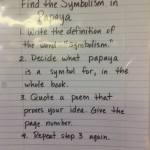 Find the Symbolism in
Papaya
1. Write the definition of
the word "Symbolism."
2. Decide what papaya
is a symbol for, in the
whole book.
3. Quote a poem that
proves your idea. Give the
page number.
4. Repeat step 3 again.